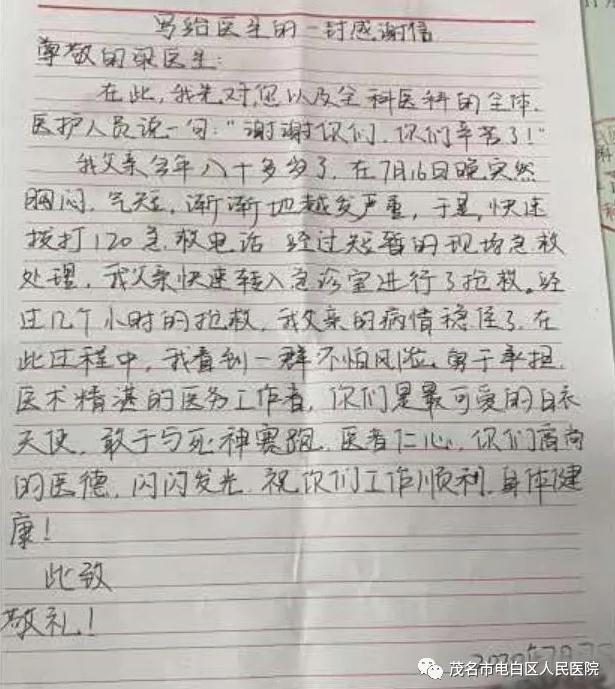 写给医生的一封感谢信
尊敬的梁医生:
在此,我先对您以及全科医科的全体
医护人员说一句:"谢谢你们,你们辛苦了!"
我父亲今年八十多岁了,在7月16日晚突然
胸闷,气短,渐渐地越发严重,于是,快速
拨打120急救电话 经过短暂的现场急救
处理,我父亲快速转入急诊室进行了抢救。经
过几个小时的抢救,我父亲的病情稳住了,在
此过程中,我看到一群不怕风险、勇于承担,
医术精湛的医务工作者,你们是最可爱的白衣
天使,敢于与死神赛跑,医者仁心,你们高尚
的医德,闪闪发光,祝你们工作顺利,身体健
康!
此致
敬礼!
茂名市电白区人民医院